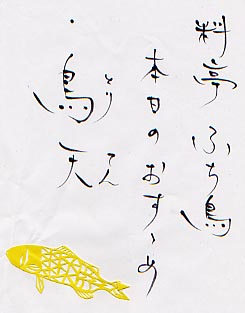 料亭 ふち鳥
本日のおすゝめ
・鳥天
とりてん